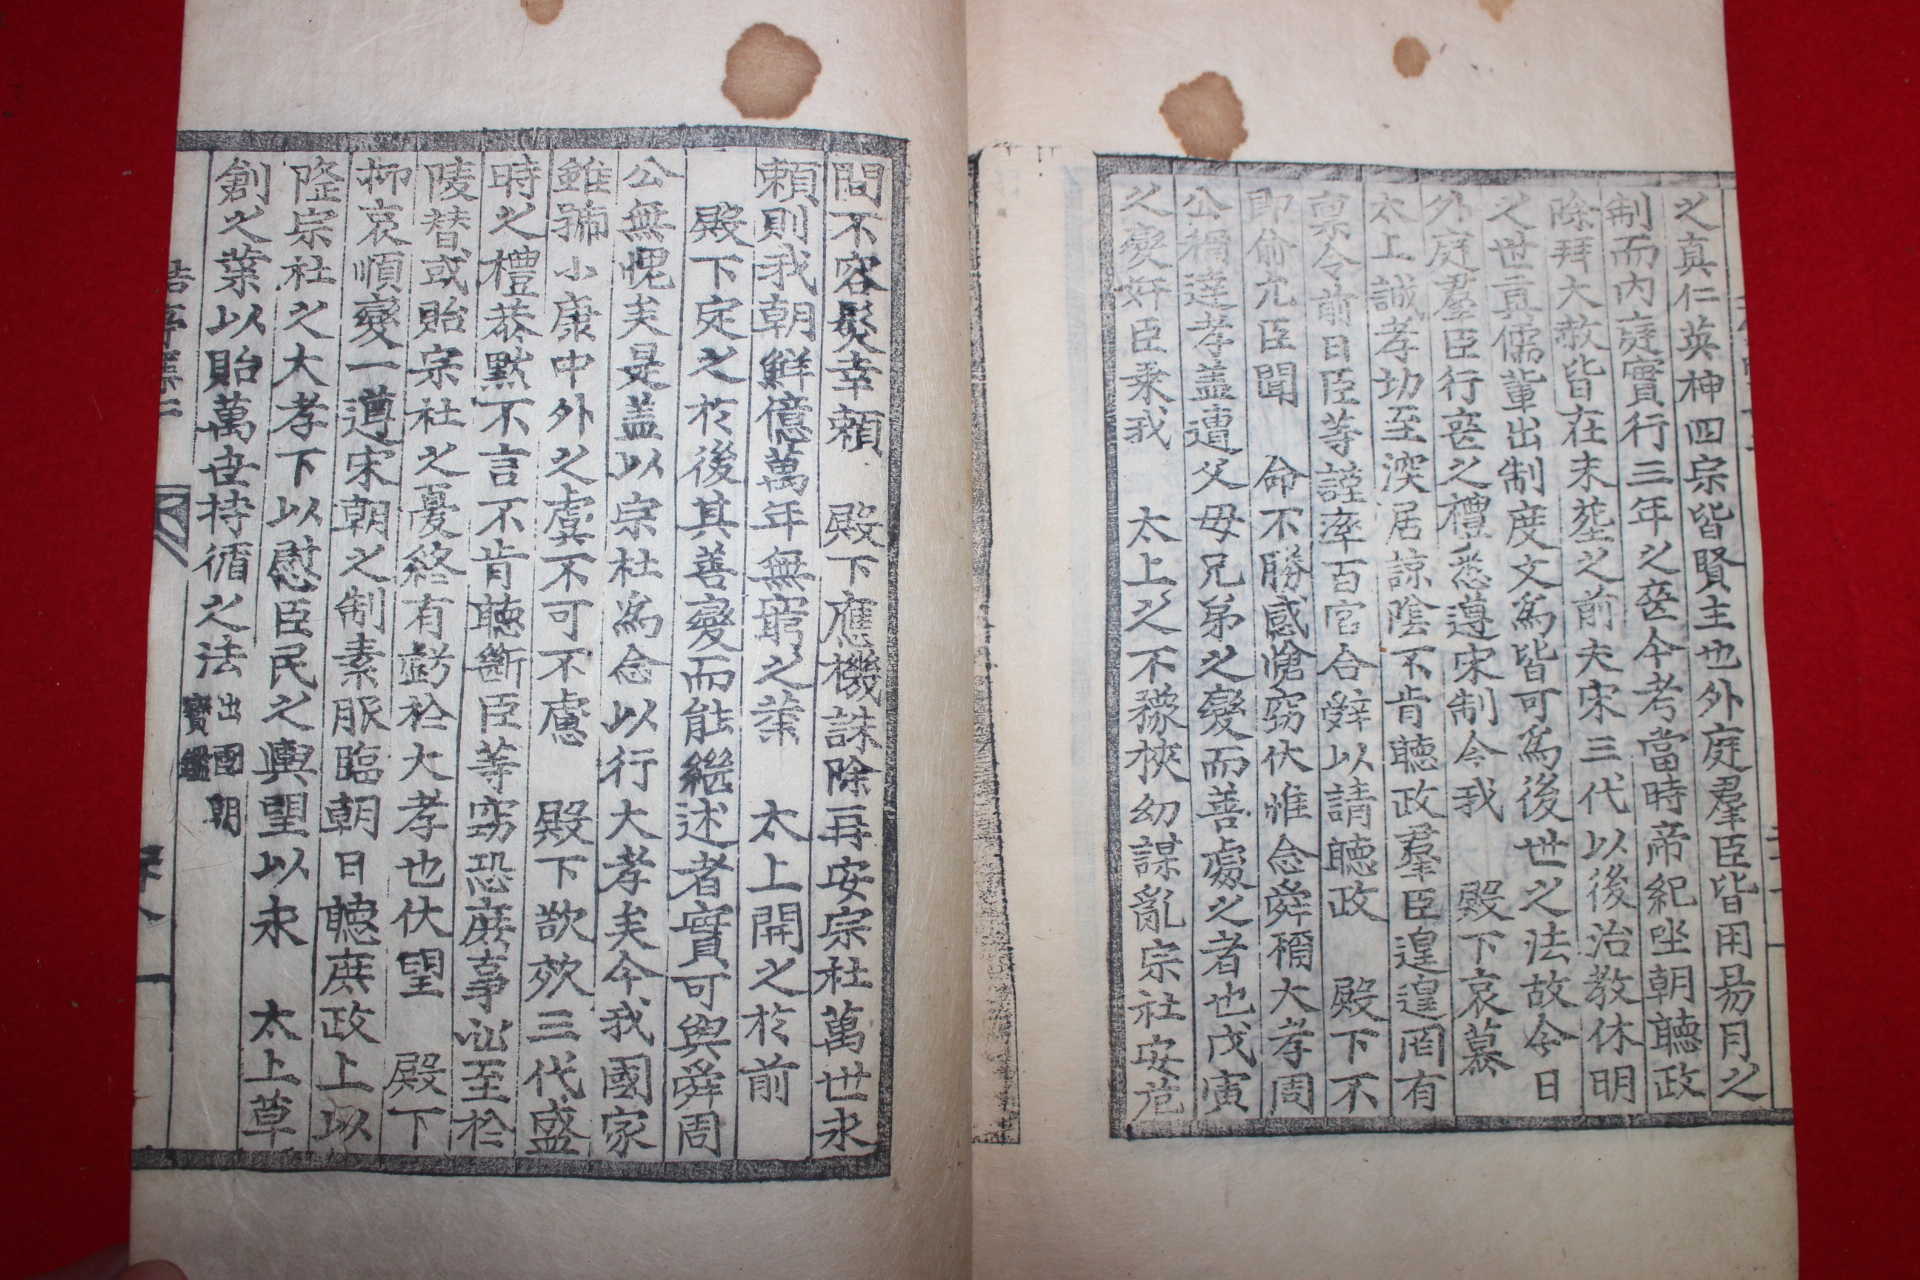 之真仁英神四宗皆賢主也外庭羣臣皆用易月之
制而內庭實行三年之喪今考當時帝紀坐朝聽政
除拜大赦皆在未葬之前夫宋三代以後治教休明
之世真儒輩出制度文爲皆可爲後世之法故今日
外庭羣臣行喪之禮悉遵宋制今我　殿下哀慕
太上誠孝切至深居諒陰不肯聽政羣臣遑遑罔有
禀令前日臣等謹率百官合辭以請聽政　殿下不
即俞允臣聞　命不勝感愴窃伏惟念舜稱大孝周
公稱達孝盖遭父母兄弟之變而善處之者也戊寅
之變奸臣乘我　太上之不豫挾幼謀亂宗社安危
間不容髮幸賴　殿下應機誅除再安宗社萬世永
賴則我朝鮮億萬年無窮之業　太上開之於前
殿下定之於後其善變而能繼述者實可與舜周
公無愧矣是盖以宗社爲念以行大孝矣今我國家
雖號小康中外之虞不可不慮　殿下欲效三代盛
時之禮恭默不言不肯聽斷臣等窃恐庶事必至於
陵替或貽宗社之憂終有虧於大孝也伏望　殿下
抑哀順變一遵宋朝之制素服臨朝日聽庶政上以
隆宗社之大孝下以慰臣民之輿望以永　太上草
創之業以貽萬世持循之法 出國朝
寶鑑